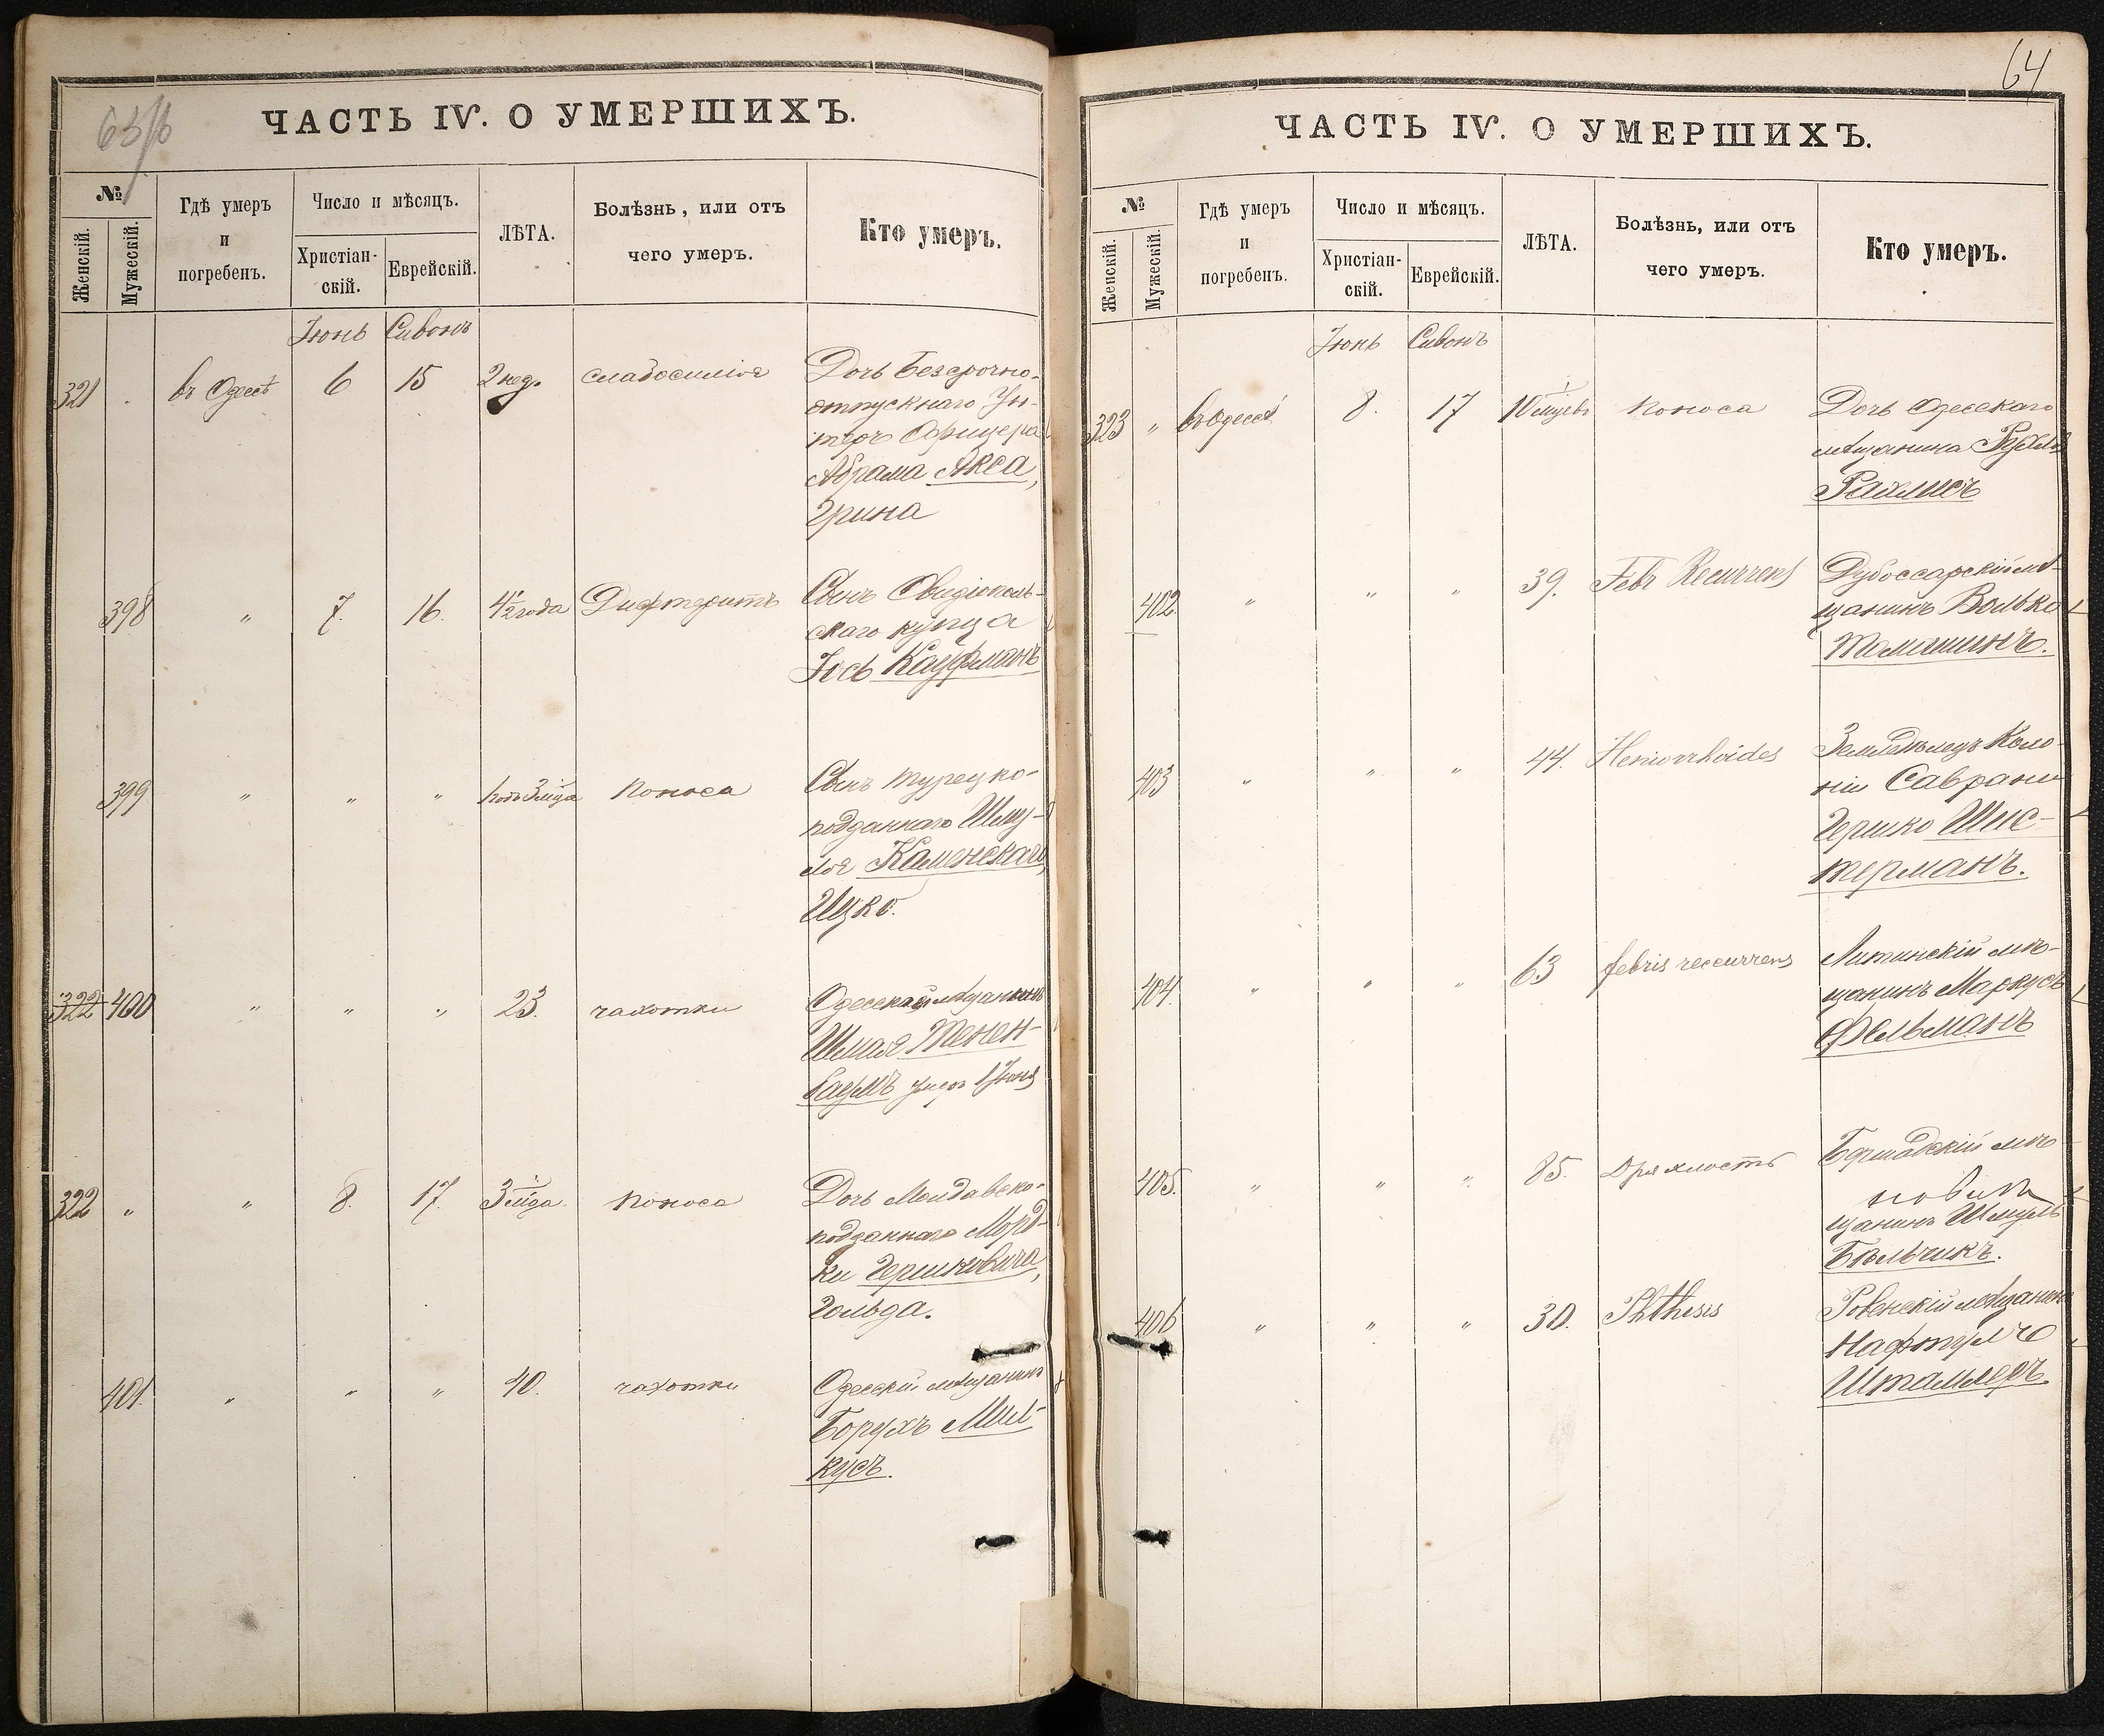 ЧАСТЬ IV. О УМЕРШИХЪ.
№
Женскій.
Мужескій.
Гдѣ умеръ
и
погребенъ.
Число и мѣсяцъ.
Христіан-
скій.
Еврейскій.
ЛѢТА.
Болѣзнь, или отъ
чего умеръ.
Кто умеръ.
Іюнь Сивонъ
321 въ Одессѣ 6 15 2 нед. слабосилія Дочь безсрочно-
отпускнаго Ун-
теръ Офицера
Абрама Акса,
Грина
398 " 7. 16. 4½ года Дифтеритъ Сынъ Овидіополь-
скаго купца
Іось Кауфманъ
399 " " " поноса Сынъ турецко-
подданнаго Шму-
ля Каменскаго,
Ицко.
322 400 " " " 23. чахотки Одесскій мѣщанинъ
Шмая Тенен-
баумъ умеръ 1 Іюня
322 " " 8. 17. 3 м-ца. поноса Дочь Молдавско-
подданнаго Морд-
ки Гершковича,
Гольда.
401. " " " 40. чахотки Одесскій мѣщанинъ
Борухъ Мил-
кусъ.
64
ЧАСТЬ IV. О УМЕРШИХЪ.
№
Женскій.
Мужескій.
Гдѣ умеръ
и
погребенъ.
Число и мѣсяцъ.
Христіан-
скій.
Еврейскій.
ЛѢТА.
Болѣзнь, или отъ
чего умеръ.
Кто умеръ.
Іюнь Сивонъ
323 " въ Одессѣ 8. 17 10 поноса Дочь Одесскаго
мѣщанина
Рахлисъ
402 " " " 39. Febr Recurrens Дубоссарскій мѣ-
щанинъ Волько
403 " " " 44. Hemorrhoides Земледѣлецъ Коло-
ніи Саврани
Гершко Шис-
терманъ.
404. " " " 63 febris reccurrens Литинскій мѣ-
щанинъ Маркусъ
Фельманъ
405. " " " 85. Дряхлость Бершадскій мѣ-
щанинъ Шмуль
Бѣльчикъ.
406 " " " 30. Phthesis Ровенскій мѣщанинъ
Нафтула